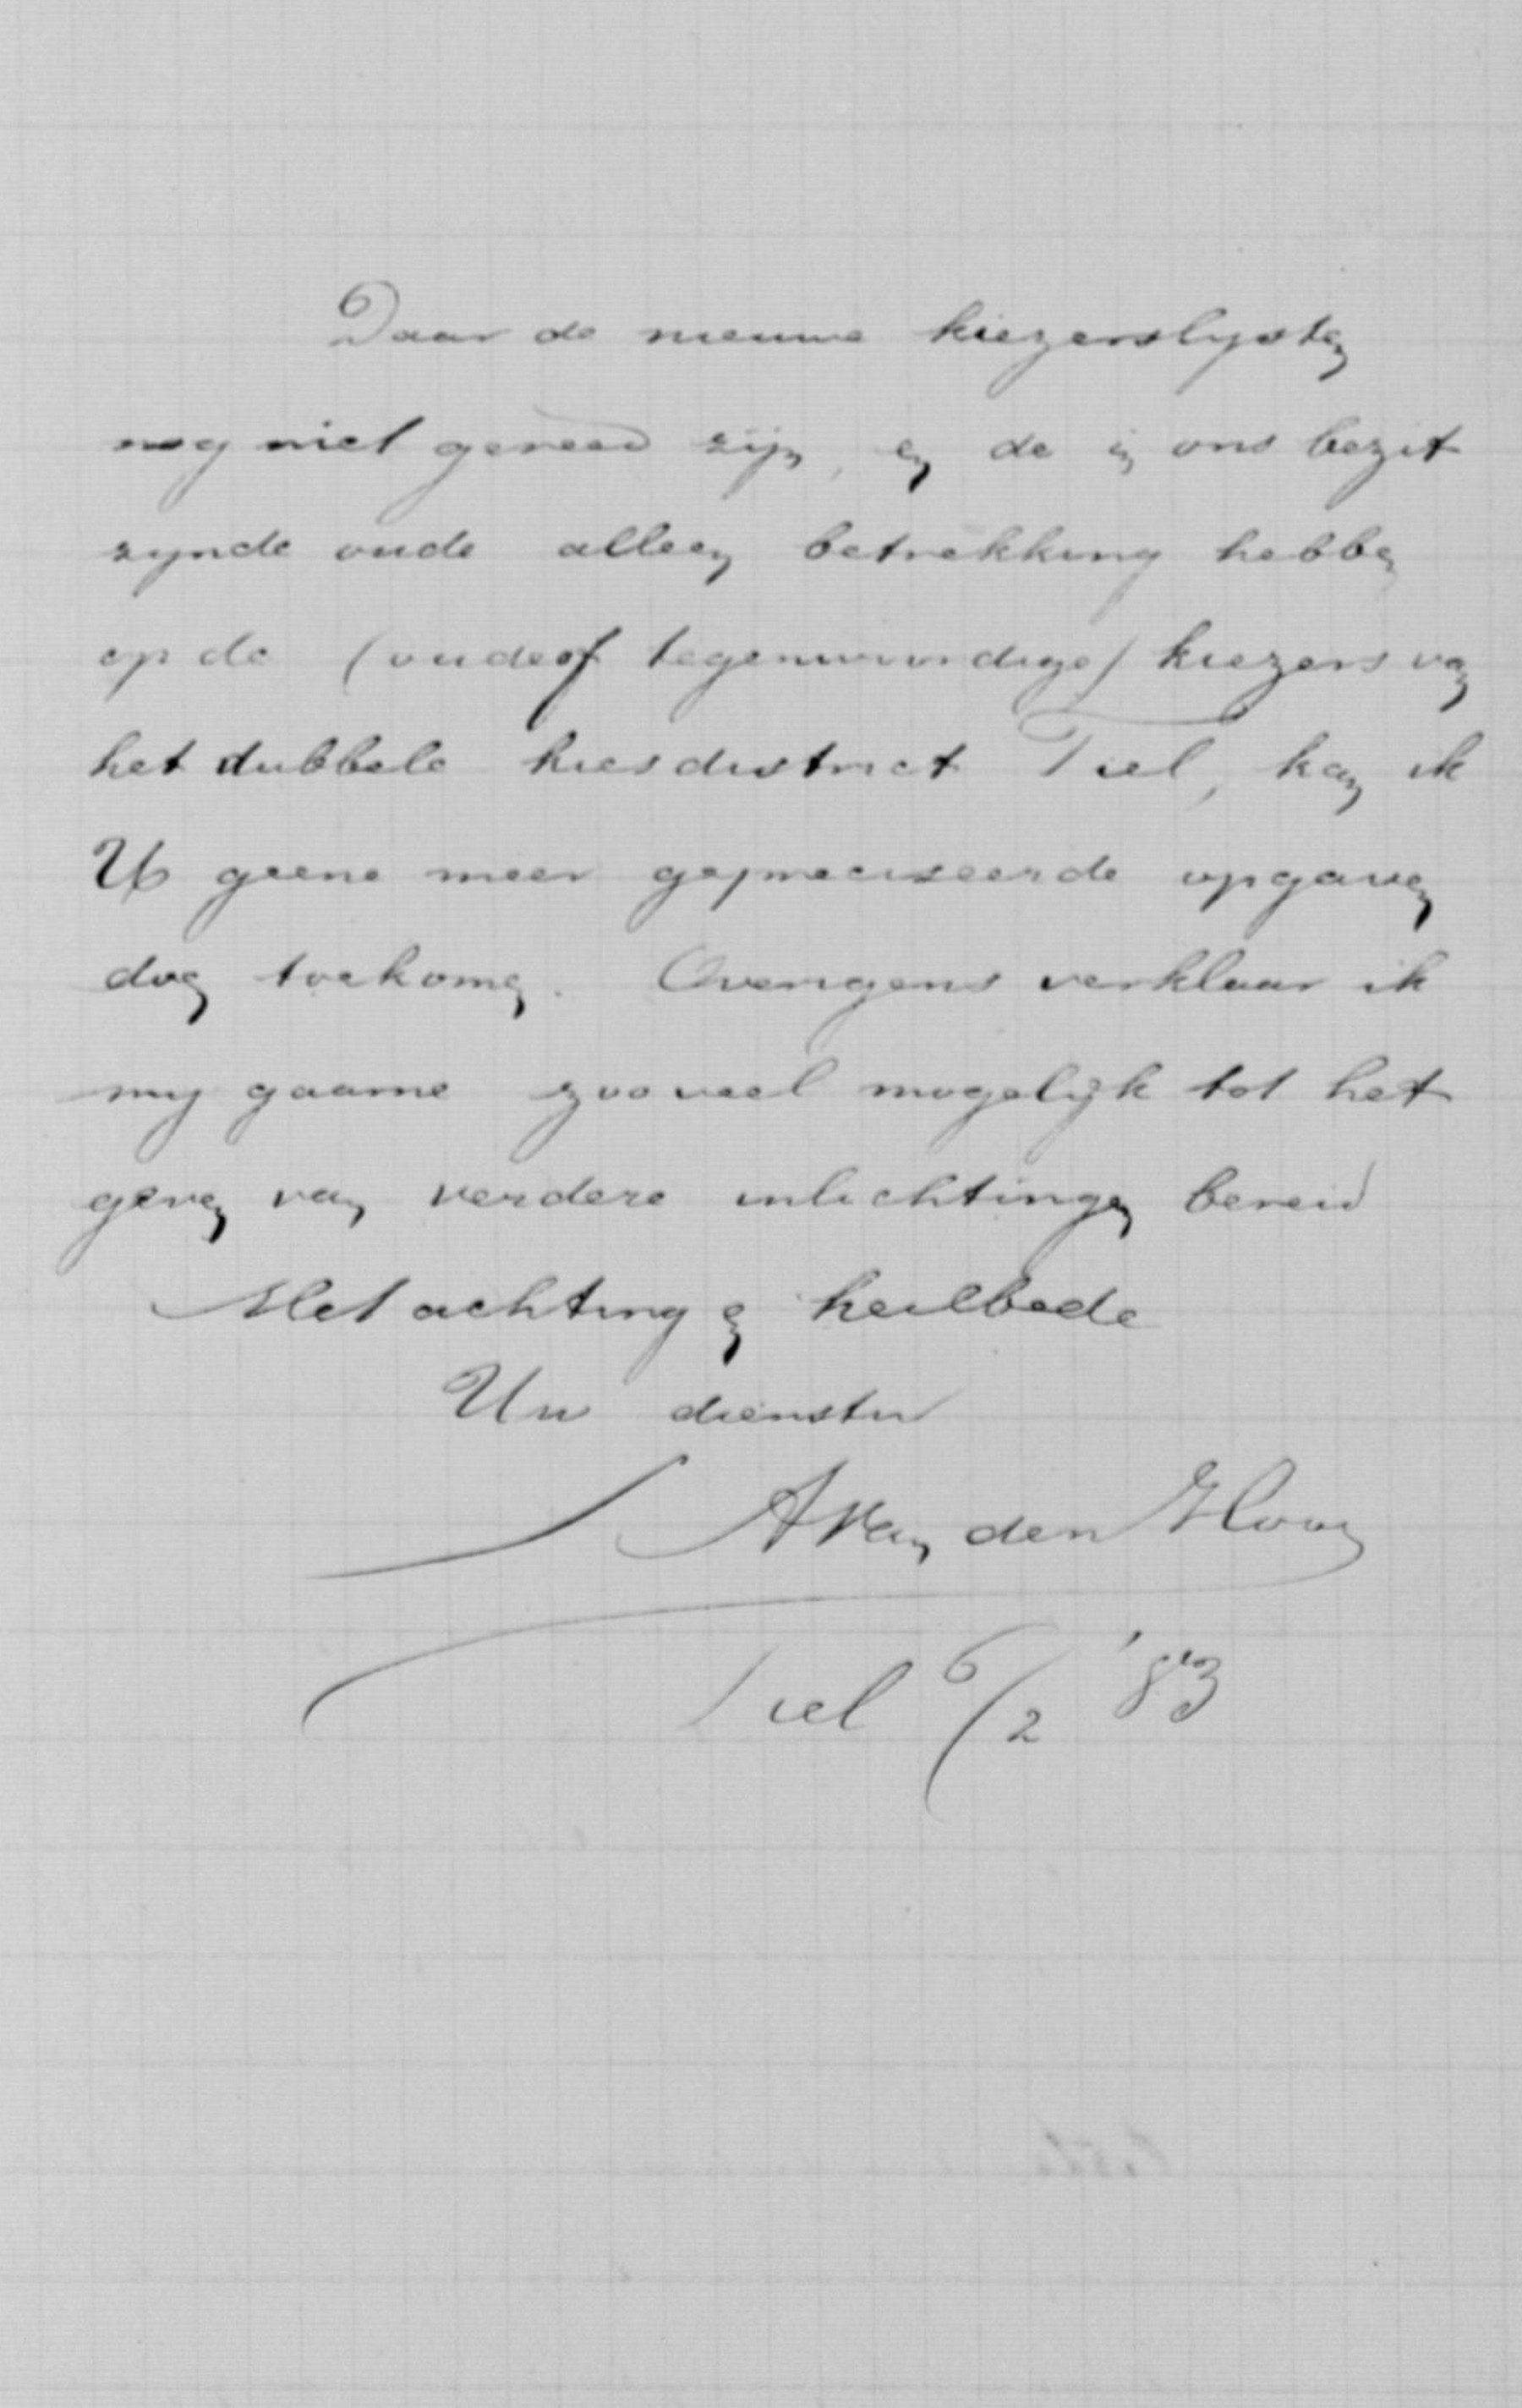 Daar de nieuwe kiezerslysten
nog niet gereed zijn, en de in ons bezit
zynde oude alleen betrekking hebben
op de (oude of tegenwoordige) kiezers van
het dubbele kiesdistrict Tiel, kan ik
U geene meer gepreciseerde opgaven
doen toekomen. Overigens verklaar ik
my gaarne zooveel mogelijk tot het
geven van verdere inlichtingen bereid
Met achting en heilbede
Uw dienstw
A Van den Hoog
Tiel 6/2 '83